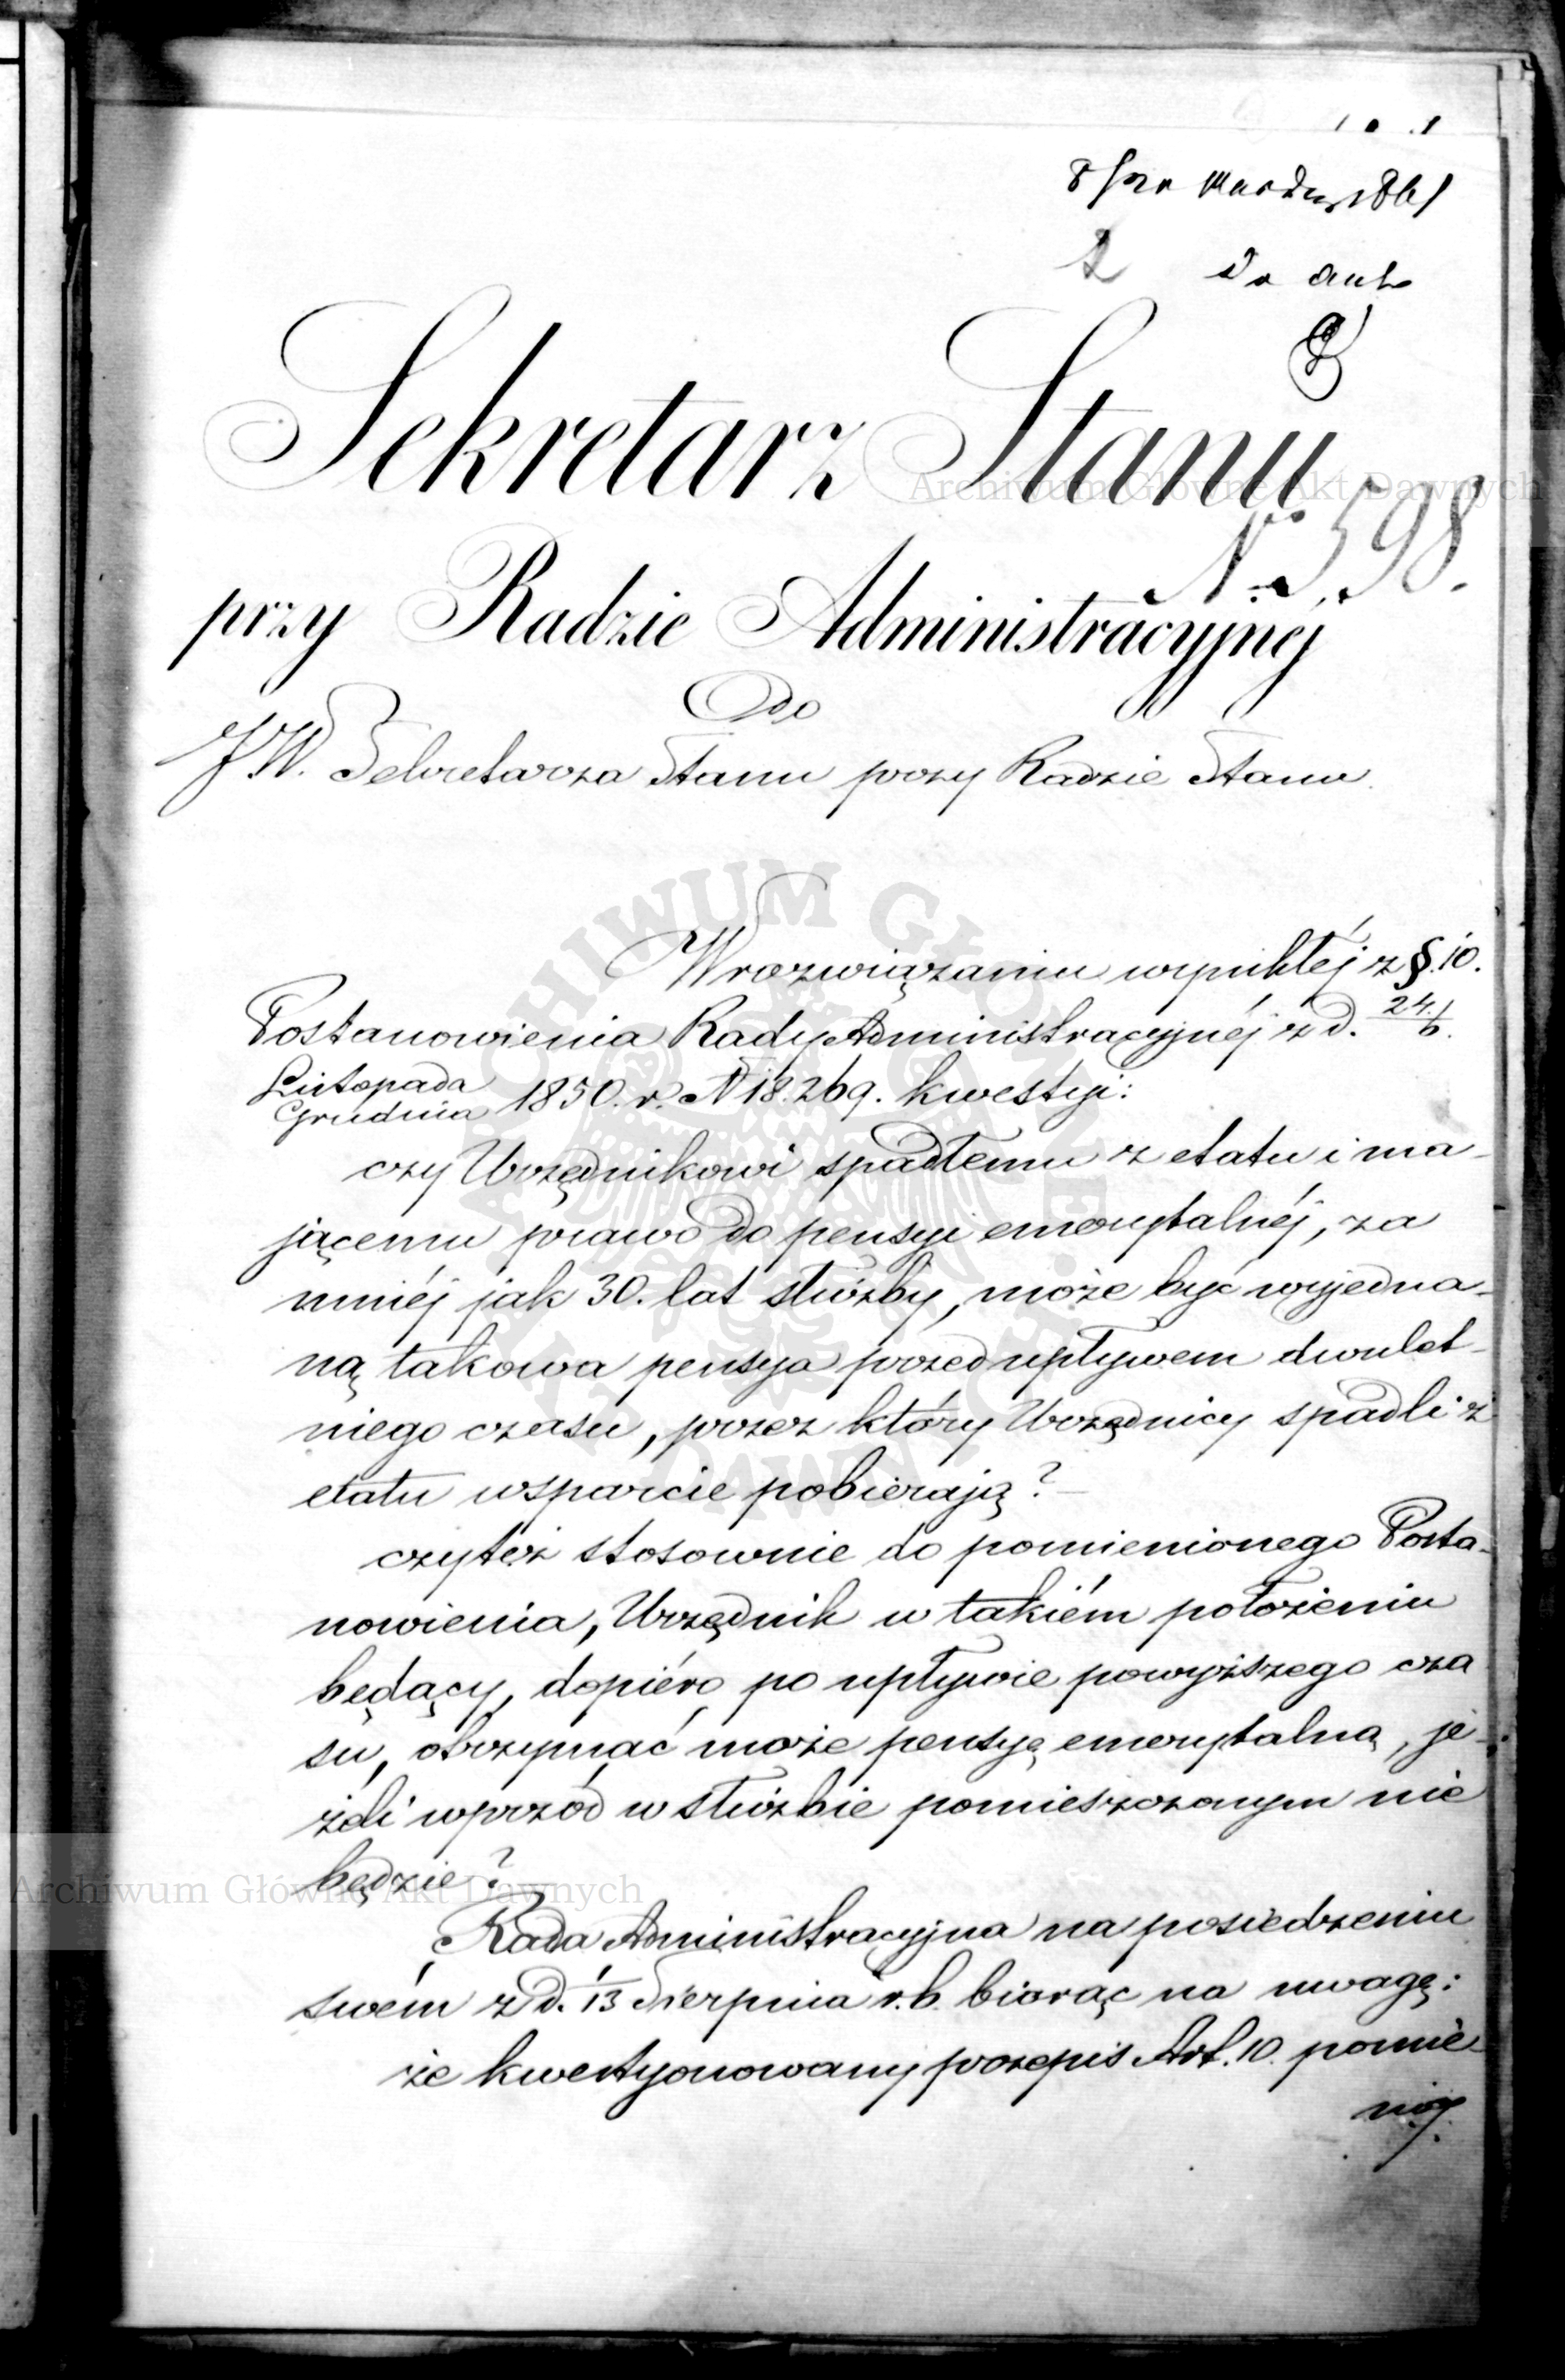 1861
Sekretarz Stanu
N. 598.
przy Radzie Administracyjnéj
Do
JW. Sekretarza Stanu przy Radzie Stanu.
W rozwiązaniu wynikłéj z §. 10.
Postanowienia Rady Administracyjnéj z d. 24/6.
Listopada/Grudnia 1850. r. N 18.269. kwestyi:
czy Urzędnikowi spadłemu z etatu i ma-
jącemu prawo do pensyi emerytalnéj, za
mniéj jak 30. lat służby, może być wyjedna-
ną takowa pensya przed upływem dwulet-
niego czasu, przez który Urzędnicy spadli z
etatu wsparcie pobierają?
czyteż stosownie do pomienionego Posta-
nowienia, Urzędnik w takiém położeniu
będący, dopiéro po upływie powyższego cza
su, otrzymać może pensyę emerytalną, je-
żeli wprzód w służbie pomieszczonym nie
będzie?
Rada Administracyjna na posiedzeniu
swém z d. 1/13 Sierpnia r. b. biorąc na uwagę:
że kwestyonowany przepis Art. 10. pomie
Archiwum Główne Akt Dawnych
Archiwum Główne Akt Dawnych
ARCHIWUM GŁÓWNE AKT DAWNYCH